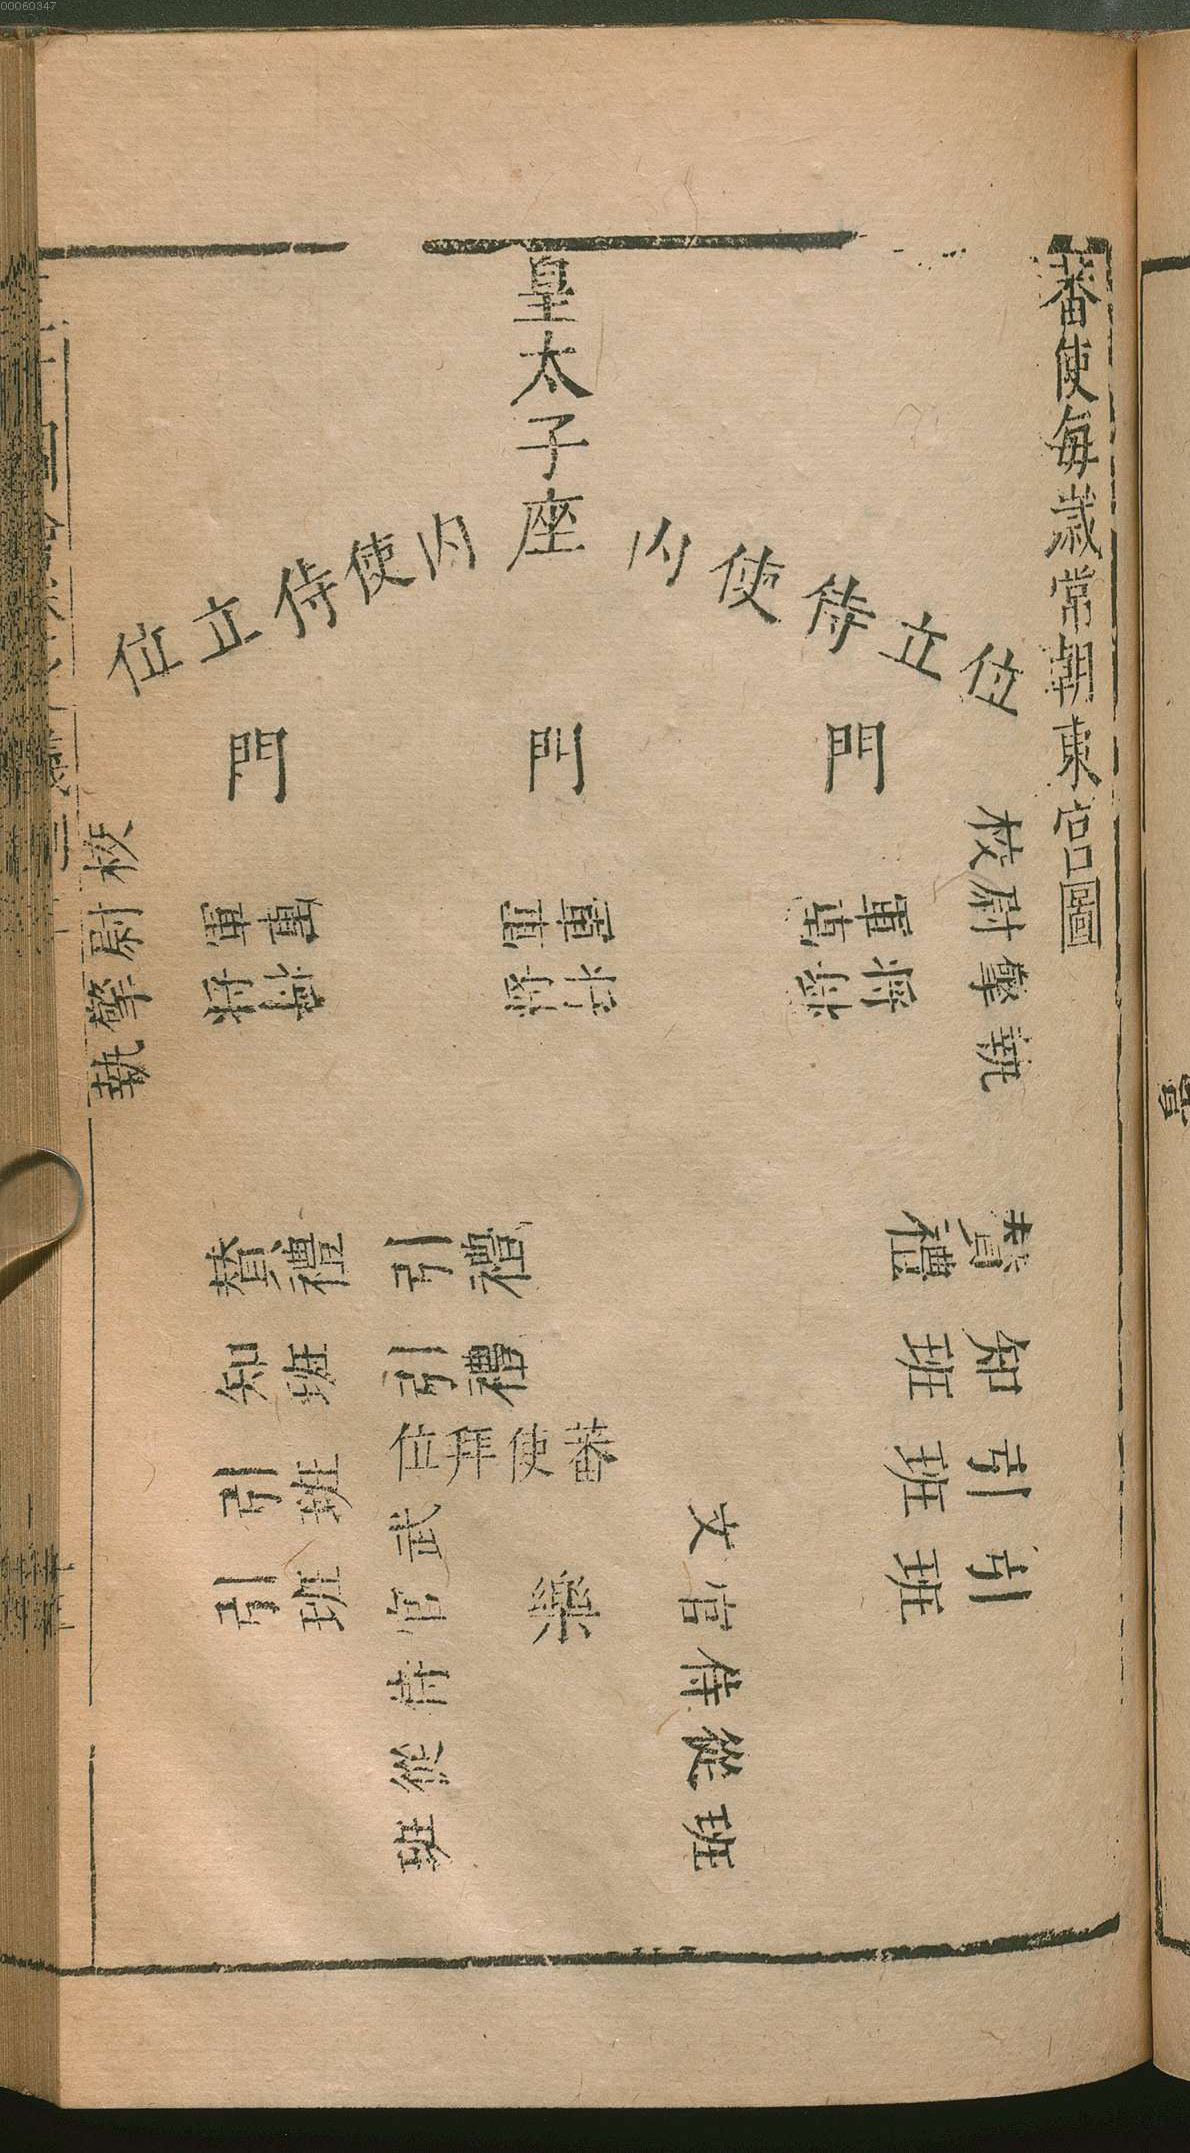 00060347
蕃使每歲常朝東宮圖
皇太子座
內使侍立位
內使侍立位
門
門
門
校尉擎執
校尉擎執
將軍
將軍
將軍
將軍
將軍
將軍
贊禮
贊禮
知班
知班
引班
引班
引班
引班
引禮
引禮
蕃使拜位
樂
文官侍從班
武官侍從班